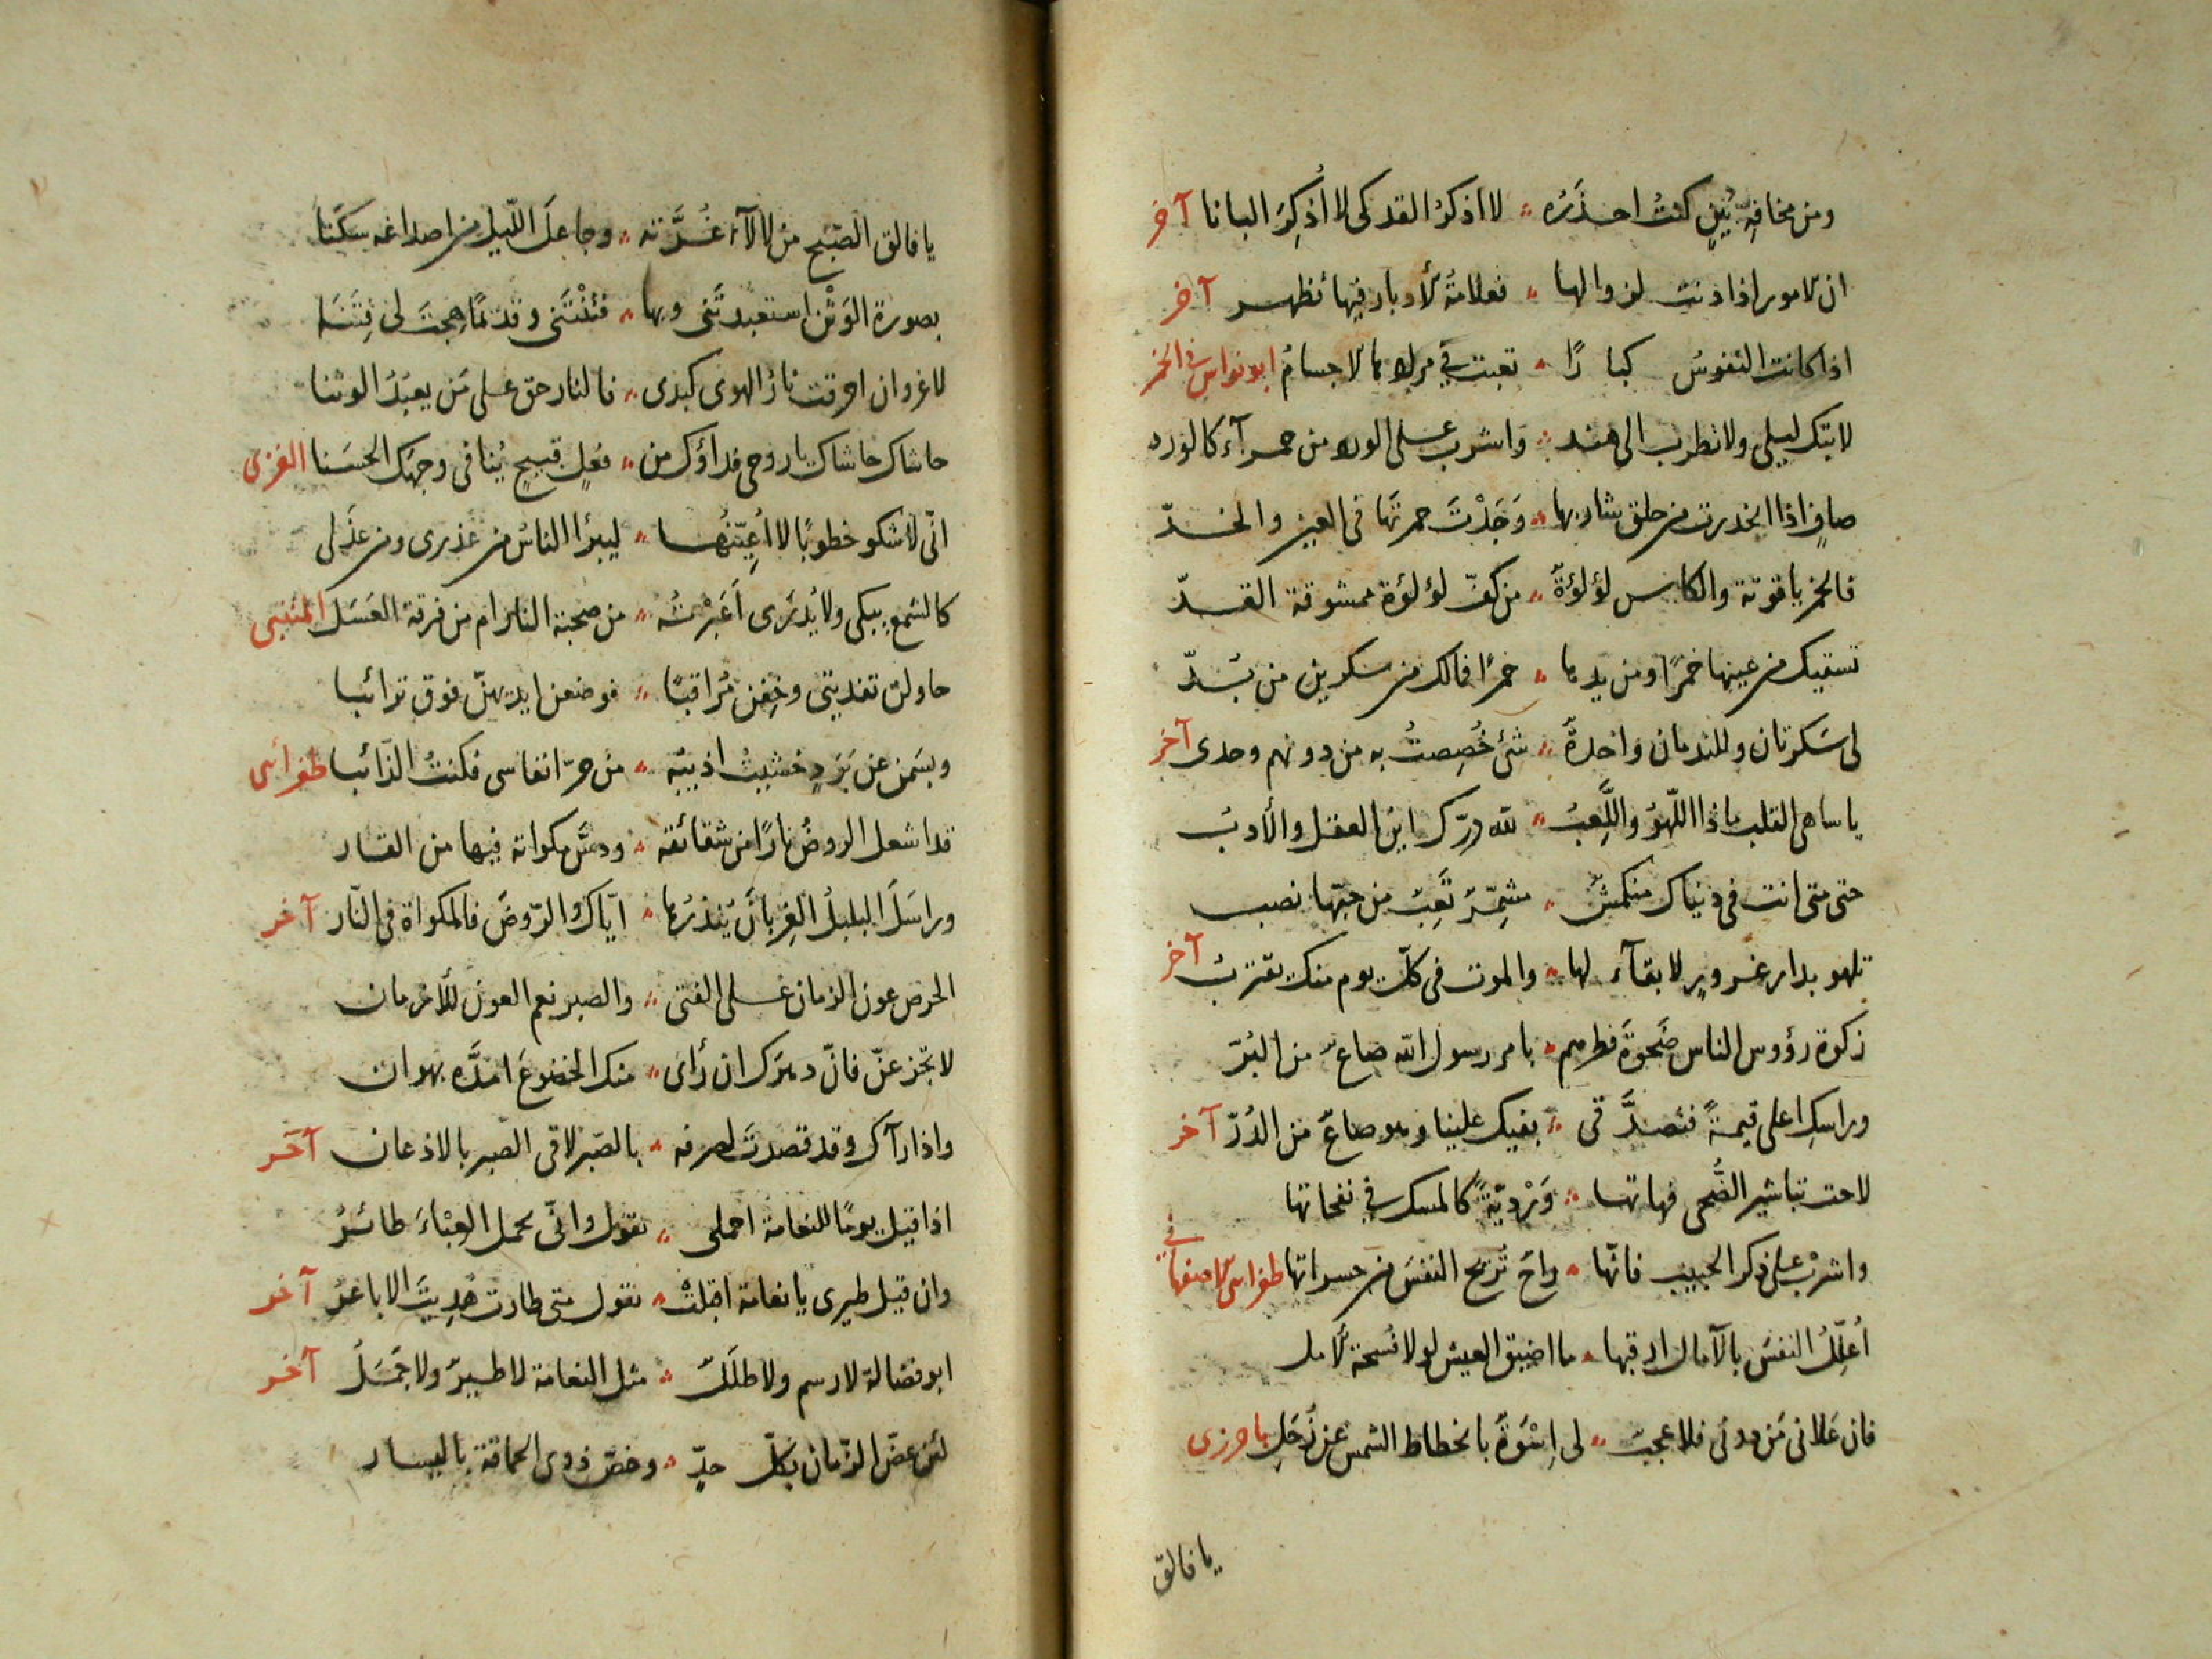 ومن مخافة بين كنت احذره ؞ لا اذكر القد كى لا أذكر البانا آخر
ان الامور اذا دنت لزوالها ؞ فعلامة الأدبار فيها تظهر آخر
اذا كانت النفوس كبارًا ؞ تعبت في مرادها الاجسام ابو نواس فى الخمر
لا تبك ليلى ولا تطرب الى هند ؞ واشرب على الورد من حمرآء كالورد
صافٍ اذا انحدرت من حلق شاربها ؞ وَجَدْتَ حمرتَها فى العين والخدّ
فالخمر ياقوتة والكاس لؤلؤةٌ ؞ من كفّ لؤلؤة ممشوقة القدّ
تسقيك من عينها خمرًا ومن يدها ؞ خمرًا فمالك من سكرين من بُدّ
لى سَكرتان وللندمان واحدةٌ ؞ شئ خُصِصتُ به من دونهم وحدى آخر
يا ساهى القلب ماذا اللّهوُ واللَّعِبُ ؞ لله درّك اين العقل والأدبُ
حتى متى انت فى دنياك منكمشٌ ؞ مشمّرٌ تَعِبٌ من حبّها نصب
تلهو بدار غرورٍ لا بقآء لها ؞ والموت فى كلّ يوم منك يقتربُ آخر
زكوة رؤوس الناس ضَحوةَ فطرهم ؞ بامر رسول الله صاعٌ من البُرّ
وراسكِ اعلى قيمةً فتصدَّقى ؞ بفيك علينا وهو صاعٌ من الدُرّ آخر
لاحت تباشير الضُّحى فهاتها ؞ وَرْديّةً كالمسك في نفحاتها
واشرب على ذكر الحبيب فانّها ؞ راحٌ تُريح النفسَ من حسراتها طغرائى الاصفهانى
أُعلِّلُ النفسَ بالآمال ارقبها ؞ ما اضيق العيش لولا فُسحة الأمل
فان عَلانى مَن دونى فلا عجبٌ ؞ لى اِسْوَةٌ بانحطاط الشمس عن زُحَلِ باخرزى
يا فالق
يا فالق الصّبح من لالآء غُرَّته ؞ وجاعل اللّيل من اصداغه سكَنا
بصورة الوَثَن استعبدتَنى وبها ؞ فتنْتَنى وقديمًا هجتَ لى فِتَنا
لا غرو ان احرقت نارُ الهوى كبدى ؞ فالنار حق على مَن يعبدُ الوثنا
حاشاك حاشاك يا روحى فداؤك من ؞ فعلٍ قبيحٍ يُنافى وجهك الحسَنا الغزى
انّى لأشكو خطوبًا لا أعيّنها ؞ ليبرأ الناسُ من عذرى ومن عذَلى
كالشمع يبكى ولا يُدرى أعَبْرتُه ؞ من صحبة النار ام من فرقة العَسَل المتنبى
حاولن تفديتى وخِفن مُراقبًا ؞ فوضعن ايديهنّ فوق ترائبا
وبسَمن عن بَرَدٍ خشيتُ اذيبُه ؞ من حرّ انفاسى فكنتُ الذّائبا طغرائى
قد اشعل الروضُ نارًا من شقائقه ؞ ودسَّ مكواته فيها من القار
وراسَلَ البلبلُ الغِربانَ يُنذرُها ؞ ايّاك والرّوضَ فالمكواة فى النّار آخر
الحرص عون الزمان على الفتى ؞ والصبر نعم العون للأزمان
لا تجزعنّ فانّ دهرَك ان رأى ؞ منك الخضوعَ امدّه بهوان
واذا رآك وقد قصدتَ لصرفه ؞ بالصّبر لاقى الصّبر بالاذعان آخر
اذا قيل يومًا للنعامة احملى ؞ تقول وانّى يحمل العِبْاءَ طائرُ
وان قيل طيرى يا نعامة اقبلتْ ؞ تقول متى طارت هُديتَ الاباعرُ آخر
ابو فضالة لا رسم ولا طلَلٌ ؞ مثل النعامة لا طيرٌ ولا جَمَلُ آخر
لئن عضّ الزّمان بكلّ حرٍّ ؞ وخصّ ذوى الحماقة باليسار